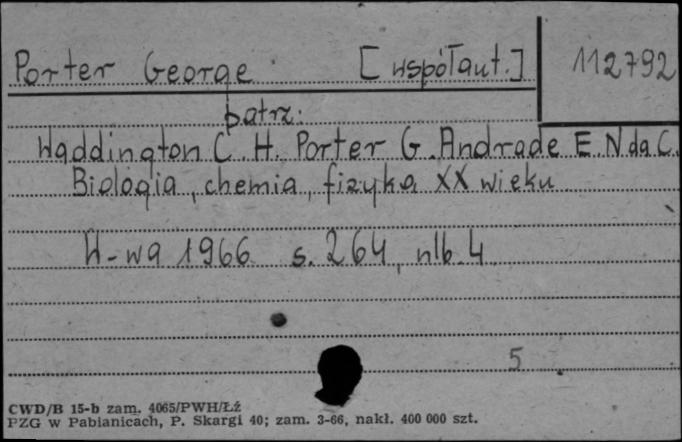 Porter George [współaut.] 112792
patrz:
Waddington C. H. Porter G. Andrade E. N da C.
Biologia, chemia, fizyka XX wieku
W-wa 1966 s. 264, nlb. 4
5
CWD/B 15-b zam. 4065/PWH/Łź
PZG w Pabianicach, P. Skargi 40; zam. 3-66, nakł. 400 000 szt.